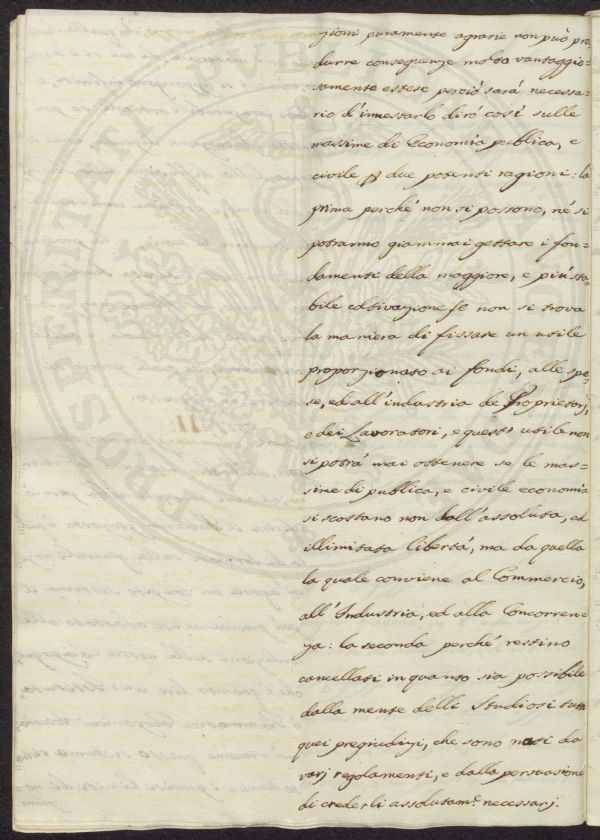 zioni puramente agrarie non può pro=
durre conseguenze molto vantaggio=
samente estese perciò sarà necessa=
rio d'innestarlo dirò così sulle
massime di Economia publica, e
civile due potenti ragioni: la
prima perché non si possono, né si
potranno giammai gettare i fon=
damenti della maggiore, e più sta=
bile coltivazione se non si trova
la maniera di fissare un utile
proporzionato ai fondi, alle spe=
se, ed all'industria de Proprietarj,
e dei Lavoratori, e questo utile non
si potrà mai ottenere se le mas=
sime di publica, e civile economia
si scostano non dall'assoluta, ed
illimitata libertà, ma da quella
la quale conviene al Commercio,
all'Industria, ed alla Concorren=
za: la seconda perché restino
cancellati in quanto sia possibile
dalla mente delli Studiosi tutti
quei pregiudizj, che sono nati da
varj regolamenti, e dalla persuasione
di crederli assolutam.e necessarj.
PROSPERITATI PVBLICAE